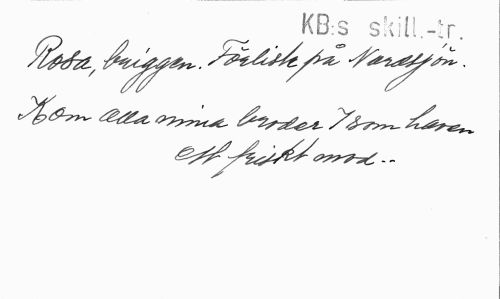 KB:s skill.-tr.
Rosa, briggen. Förlist på Nordsjön.
Kom alla mina bröder I som haven
ett friskt mod --